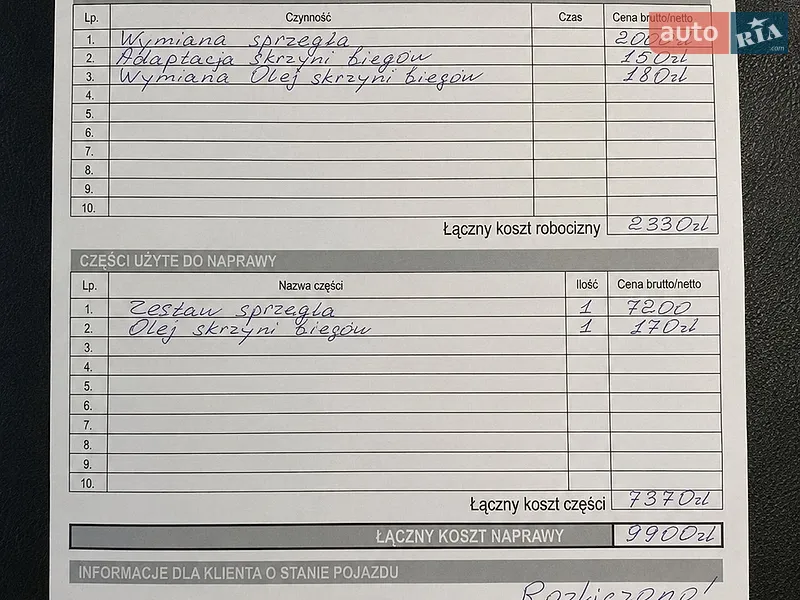 Lp. Czynność Czas Cena brutto/netto
auto RIA .com
1. Wymiana sprzęgła 2000zł
2. Adaptacja skrzyni biegów 150zł
3. Wymiana Olej skrzyni biegów 180zł
4.
5.
6.
7.
8.
9.
10.
Łączny koszt robocizny 2330zł
CZĘŚCI UŻYTE DO NAPRAWY
Lp. Nazwa części Ilość Cena brutto/netto
1. Zestaw sprzęgła 1 7200
2. Olej skrzyni biegów 1 170zł
3.
4.
5.
6.
7.
8.
9.
10.
Łączny koszt części 7370zł
ŁĄCZNY KOSZT NAPRAWY 9900zł
INFORMACJE DLA KLIENTA O STANIE POJAZDU